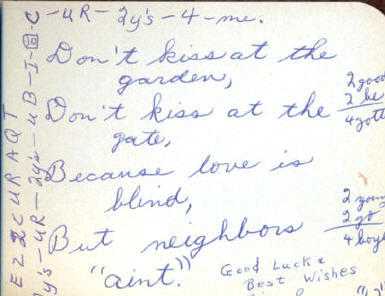 -UR-2y's-4-me.
Don't kiss at the
garden,
Don't kiss at the
gate,
Because love is
blind,
But neighbors
"aint."
2 good
2 be
4gott
2 young
2 go
4 boys
Good Luck &
Best Wishes
EZ2CURAQT
y's-UR-2y's-UB-I-C